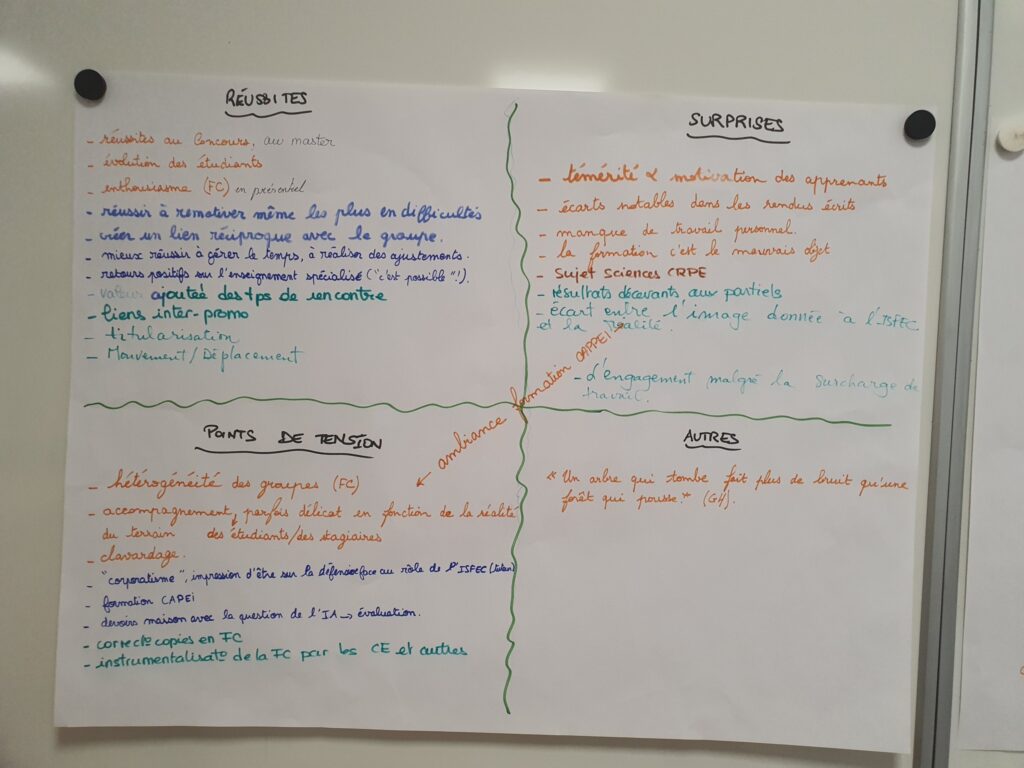 RÉUSSITES
- réussites au Concours, au master
- évolution des étudiants
- enthousiasme (FC) en présentiel
- réussir à remotiver même les plus en difficultés
- créer un lien réciproque avec le groupe.
- mieux réussir à gérer le temps, à réaliser des ajustements.
- retours positifs sur l'enseignement spécialisé ("c'est possible"!).
- valeur ajoutée des tps de rencontre
- liens inter-promo
- titularisation
- Mouvement/Déplacement
SURPRISES
- témérité & motivation des apprenants
- écarts notables dans les rendus écrits
- manque de travail personnel.
- la formation c'est le mauvais objet
- Sujet Sciences CRPE
- résultats décevants aux partiels
- écart entre l'image donnée à l'ISFEC
et la réalité.
- d'engagement malgré la surcharge de
travail.
← ambiance formation CAPPEI →
POINTS DE TENSION
- hétérogénéité des groupes (FC)
- accompagnement, parfois délicat en fonction de la réalité
du terrain des étudiants/des stagiaires
- clavardage.
- "corporatisme", impression d'être sur la défensive face au rôle de l'ISFEC
- formation CAPEI
- devoirs maison avec la question de l'IA → évaluation.
- correct° copies en FC
- instrumentalisat° de la FC par les CE et autres
AUTRES
* Un arbre qui tombe fait plus de bruit qu'une
forêt qui pousse.* (GH).